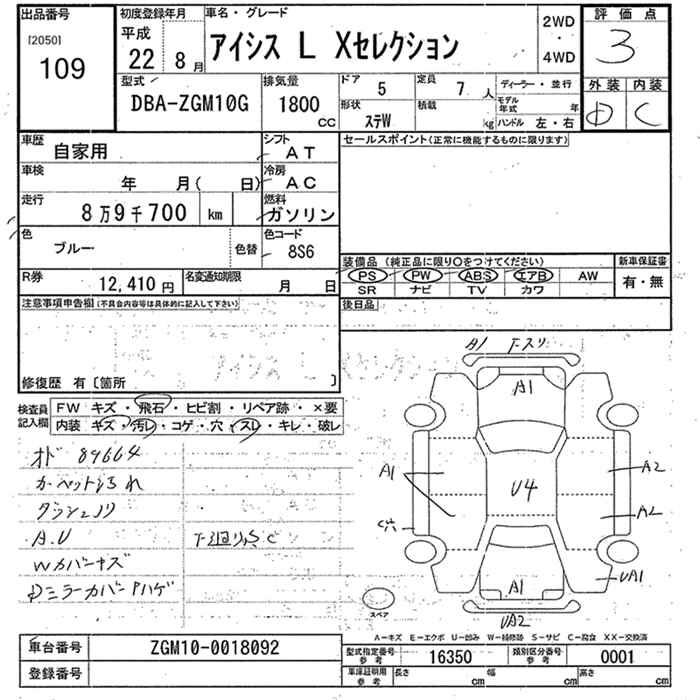 出品番号
[2050]
109
初度登録年月
平成
22 8 月
車名・グレード
アイシス L Xセレクション
2WD
・
4WD
評価点
3
外装 内装
D C
型式
DBA-ZGM10G
排気量
1800
CC
ドア
5
定員
7 人
形状
ステW
積載
kg
ディーラー・並行
モデル年式 年
ハンドル 左・右
車歴
自家用
シフト
AT
車検
年 月( 日)
冷房
AC
走行
8万9千700 km
燃料
ガソリン
色
ブルー
色替
色コード
8S6
R券
12,410 円
名変通知期限
月 日
セールスポイント(正常に機能するものに限ります)
装備品(純正品に限り〇をつけてください)
PS PW ABS エアB AW
SR ナビ TV カワ
新車保証書
有・無
後日品
注意事項申告欄(不具合内容等は具体的に記入して下さい)
修復歴 有〔箇所 〕
検査員記入欄
FW キズ・飛石・ヒビ割・リペア跡・×要
内装 キズ・汚レ・コゲ・穴・スレ・キレ・破レ
オド 89664
カーペットよごれ
A.U
Wカバーキズ
Dミラーカバーハゲ
A1 Fスリ
A1
A1
U4
A2
A2
C穴
UA1
A1
UA2
スペア
A-キズ E-エクボ U-凹み W-補修跡 S-サビ C-腐食 XX-交換済
車台番号
ZGM10-0018092
登録番号
型式指定番号
参考
16350
類別区分番号
参考
0001
車庫証明用
参考
長さ cm
幅 cm
高さ cm